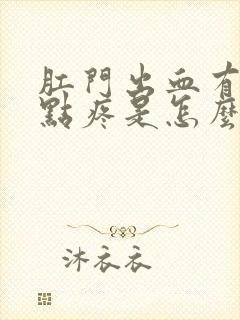 肛門出血有
點疼是怎麼
沐衣衣